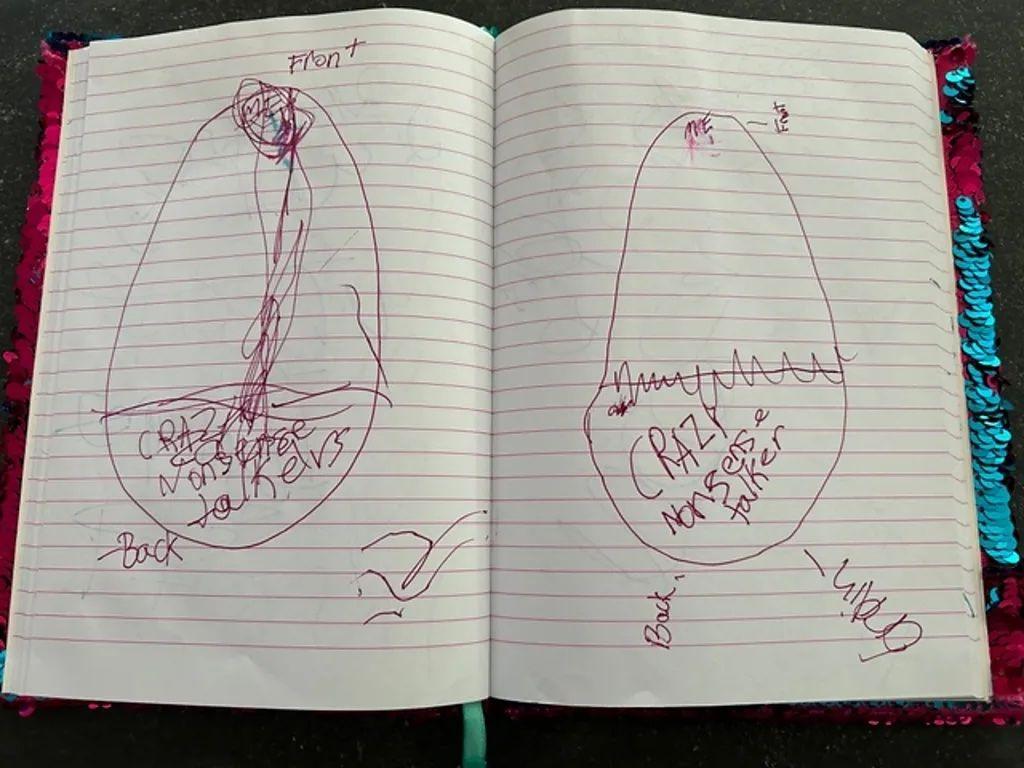 Front
ME
CRAZY
Nonsense
talkers
Back
ME
Front
CRAZY
Nonsense
talker
Back
Brain